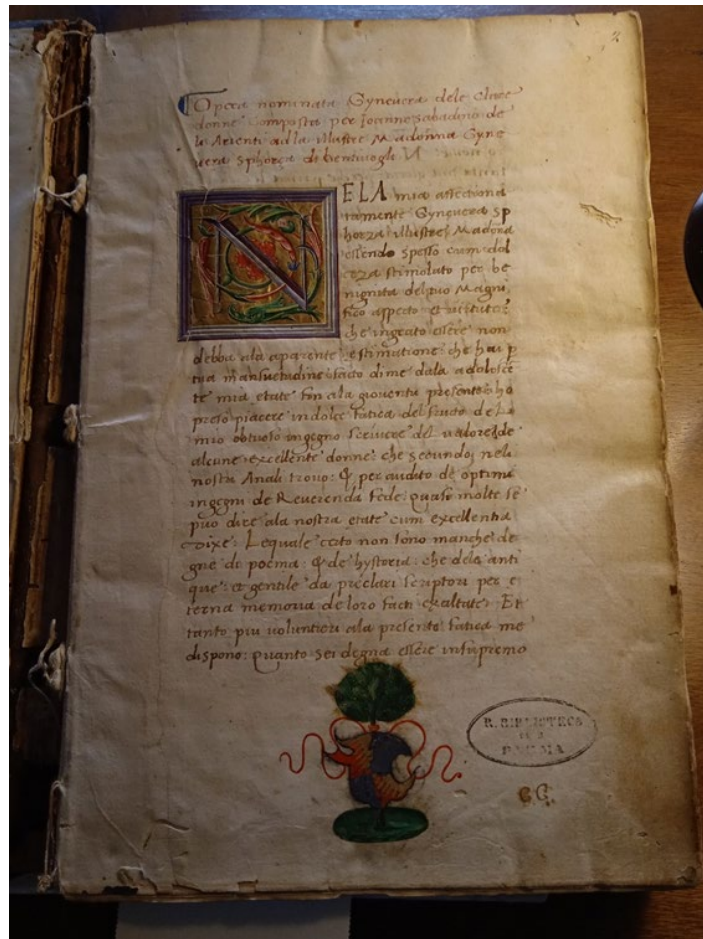 2
Opera nominata Gynevera dele Clare
donne Composta per Joanne Sabadino de
li Arienti ad la illustre Madonna Gyne
vera Sphorza di Bentivogli
N
ELA mia affectiona
tamente Gynevera Sp
horza illustre Madona
essendo spesso cum dol
ceza stimolato per be
nignita del tuo Magni
fico aspecto et virtute
che ingrato essere non
debba ala aparente estimatione che hai p
tua mansuetudine facto di me dala adolesce
te mia etate fin ala gioventu presente ho
preso piacere in dolce fatica del fructo del
mio obtuso ingegno scrivere del valore de
alcune excellente donne che secundo neli
nostri Anali trovo: & per audito de optimi
ingegni de Reverenda fede: quase molte se
puo dire ala nostra etate cum excellentia
vixe: Lequale certo non sono manche de
gne di poema: & de hystoria: che dele anti
que: et gentile da preclari scriptori per e
terna memoria de loro facti exaltate: Et
tanto piu voluntieri ala presente fatica me
dispono: quanto sei degna essere in supremo
R. BIBLIOTECA
DI
PARMA